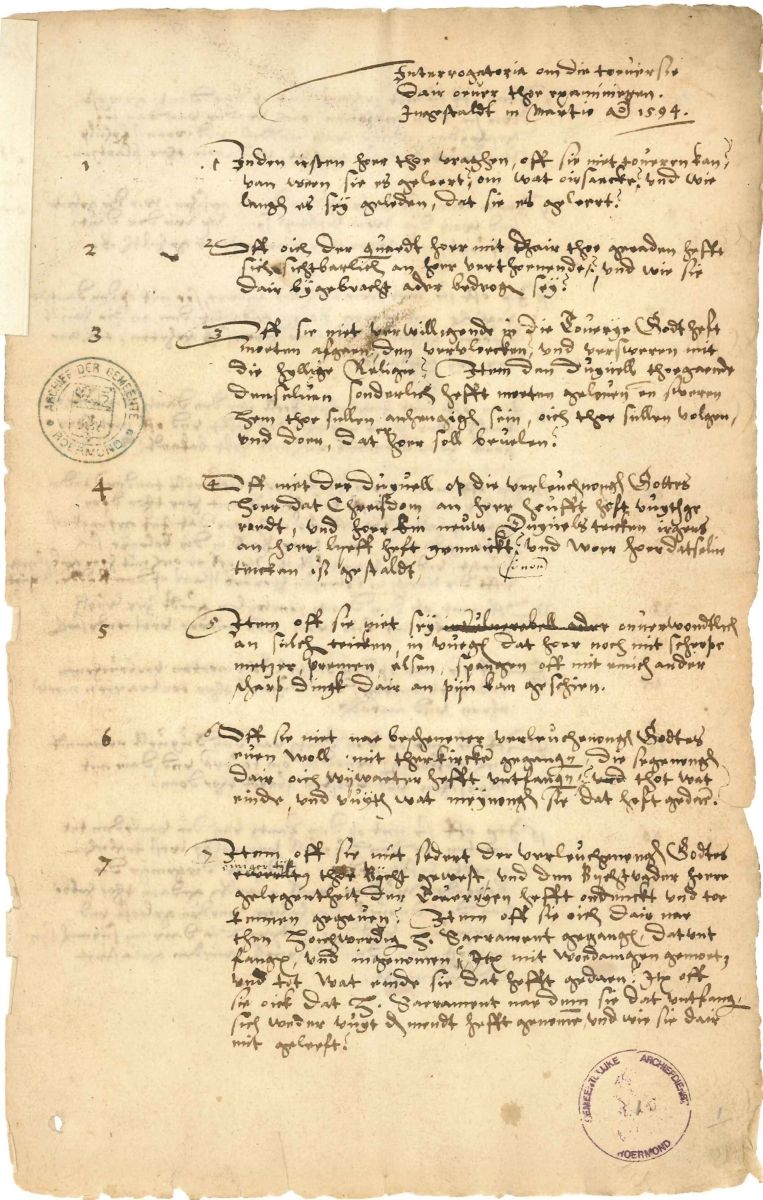 Interrogatoria om die toeuersie
dair oeuer thoe examinieren.
Ingestaldt in Martio Ao 1594.
1 1 Inden irsten hoer thoe vraghen, off sie niet toueren kan,
van wem sie es geleert, om wat oirsaecke, und wie
langh es sey geleden, dat sie es geleert?
2 2 Off oich der quaedt hoer mit thair thoe geraden hefft
sich sichtbarlich an hoer verthoenende, und wie sie
dair bygebracht ader bedrogen sey?
3 3 Off sie niet verwilligende in die Touerye Godt heft
moeten afgaen, den vervloecken, und versweren mit
die hyllige Religie? Item den duyuell thoegaende
denseluen sonderlich hefft moeten gelouen en sweren
hem thoe sullen anhengigh sein, oich thoe sullen volgen,
und doen, dat hoer soll beuelen?
4 4 Off niet der duyuell op die verleuchnongh Gottes
hoer dat Chrisdom an hoer heufft heft vuythge
, und hoer ein neuw Duyuels teicken irgens
an hoer lyeff heft gemaickt, und woer hoer datselue
teicken is gestaldt
5 5 Item off sie niet sey ader onuerwondtlich
an sulch teicken, in vuegen dat hoer noch mit scherpe
metzer, premen, elsen, spangen off mit einich ander
scharp dingk dair an pijn kan geschien.
6 6 Off sie niet nae beschener verleuchenongh Godtes
euen woll mit ther kircken gegangen, die segenongh
dair oich wywaeter hefft untfangen, und thot wat
einde, und vuyth wat meynongh sie dat heft gedaen?
7 7 Item off sie niet sedert der verleuchenongh Godtes
thoe Bycht geweest, und den Bychtuader hoere
gelegentheit der Touerryen hefft ondeckt und toe
kennen gegeuen? Item off sie oich dair nae
then hochwerdig H. Sacrament gegangen, dat unt
fangen, und ingenomen, Itz mit
und tot wat einde sie dat hefft gedaen, Itz off
sie oick dat H. Sacrament nae dem sie dat untfang,
sich weder vuyt den mondt hefft genomen, und wie sie dair
mit geleeft?
ARCHIEF DER GEMEENTE
ROERMOND
GEMEENTELIJKE ARCHIEFDIENST
ROERMOND
1